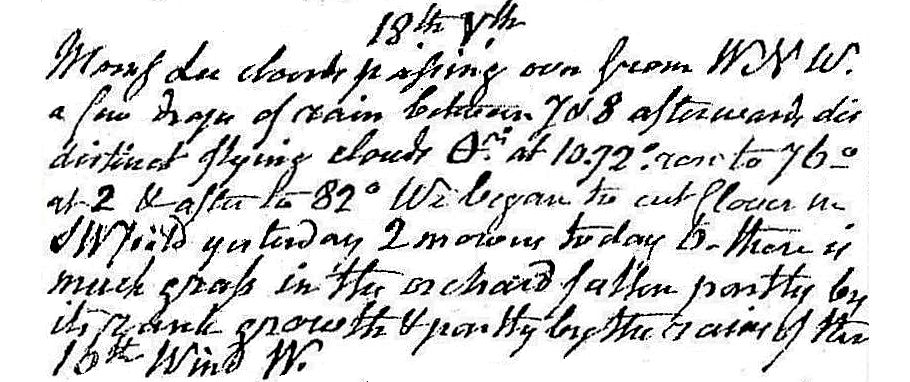 18th Vth
Morng dee clouds passing over from WNW.
a few drops of rain between 7 & 8 afterwards dis
distinct flying clouds at 10. 72°. rose to 76°
at 2 & after to 82° We began to cut Clover in
SW field yesterday 2 mowers today 6. there is
much grass in the orchard fallen partly by
its rank growth & partly by the rains of the
16th Wind W.